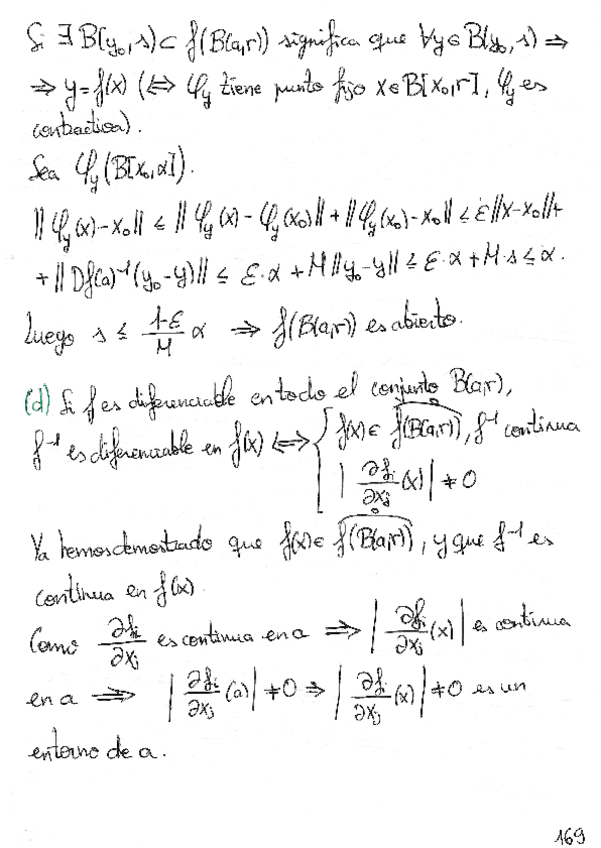 Si ∃ B(y₀, s) ⊂ f(B(a,r)) significa que ∀y ∈ B(y₀, s) ⇒
⇒ y = f(x) (⇔ φ_y tiene punto fijo x ∈ B[x₀, r], φ_y es
contractiva).
Sea φ_y(B[x₀, α]).
‖φ_y(x) - x₀‖ ≤ ‖φ_y(x) - φ_y(x₀)‖ + ‖φ_y(x₀) - x₀‖ ≤ ε‖x - x₀‖ +
+ ‖Df(a)⁻¹(y₀ - y)‖ ≤ ε·α + M‖y₀ - y‖ ≤ ε·α + M·s ≤ α.
Luego s ≤ (1-ε)/M α ⇒ f(B(a,r)) es abierto.
(d) Si f es diferenciable en todo el conjunto B(a,r),
f⁻¹ es diferenciable en f(x) ⇔ { f(x) ∈ f(B(a,r))°, f⁻¹ continua
|∂fᵢ/∂xⱼ (x)| ≠ 0
Ya hemos demostrado que f(x) ∈ f(B(a,r))°, y que f⁻¹ es
continua en f(x).
Como ∂fᵢ/∂xⱼ es continua en a ⇒ |∂fᵢ/∂xⱼ (x)| es continua
en a ⇒ |∂fᵢ/∂xⱼ (a)| ≠ 0 ⇒ |∂fᵢ/∂xⱼ (x)| ≠ 0 es un
entorno de a.
169